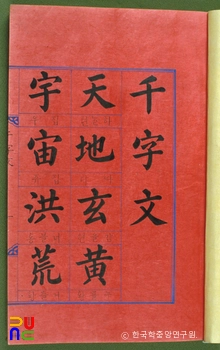 千字文
天地玄黄
宇宙洪荒
ⓒ 한국학중앙연구원